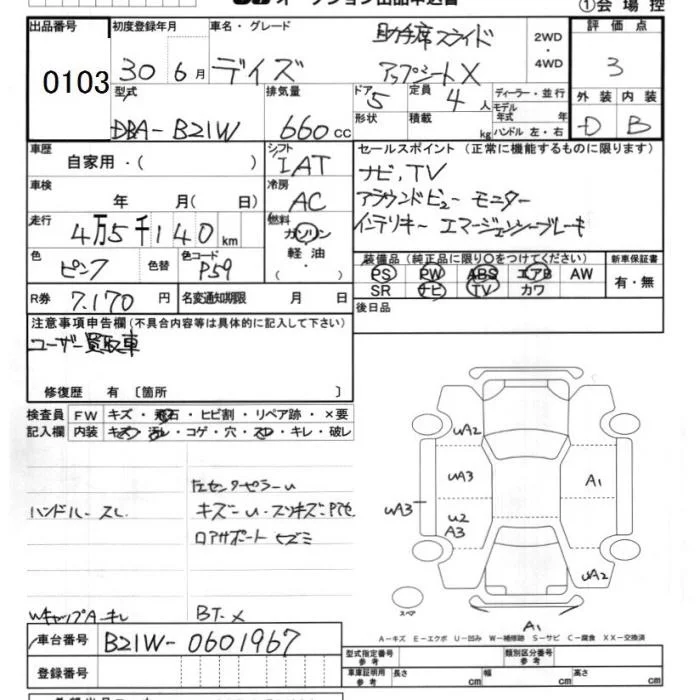 オークション出品申込書
①会場控
出品番号
0103
初度登録年月
30 6月
車名・グレード
デイズ
助手席スライド
アップシートX
2WD
・
4WD
評価点
3
型式
DBA-B21W
排気量
660cc
ドア 5
形状
定員 4人
積載 kg
ディーラー・並行
モデル年式 年
ハンドル 左・右
外装 内装
D B
車歴
自家用・( )
シフト
IAT
セールスポイント(正常に機能するものに限ります)
ナビ,TV
アラウンドビュー モニター
インテリキー エマージェンシーブレーキ
車検 年 月( 日)
冷房
AC
走行 4万5千140km
燃料
ガソリン
軽油・
( )
色 ピンク 色替
色コード P59
装備品(純正品に限り○をつけてください)
PS PW ABS エアB AW
SR ナビ TV カワ
新車保証書
有・無
R券 7.170円
名変通知期限 月 日
後日品
注意事項申告欄(不具合内容等は具体的に記入して下さい)
ユーザー買取車
修復歴 有 〔箇所 〕
検査員 FW キズ・飛石・ヒビ割・リペア跡・×要
記入欄 内装 キズ・汚レ・コゲ・穴・スレ・キレ・破レ
左センターピラーU
ハンドル-スレ
ロアサポート ヒズミ
WキャップA-キレ
BT-X
uA2
uA3
A1
uA3
u2
A3
uA2
スペア
A1
A-キズ E-エクボ U-凹み W-補修跡 S-サビ C-腐食 XX-交換済
車台番号 B21W-0601967
登録番号
型式指定番号
参考
類別区分番号
参考
車庫証明用
参考
長さ cm 幅 cm 高さ cm